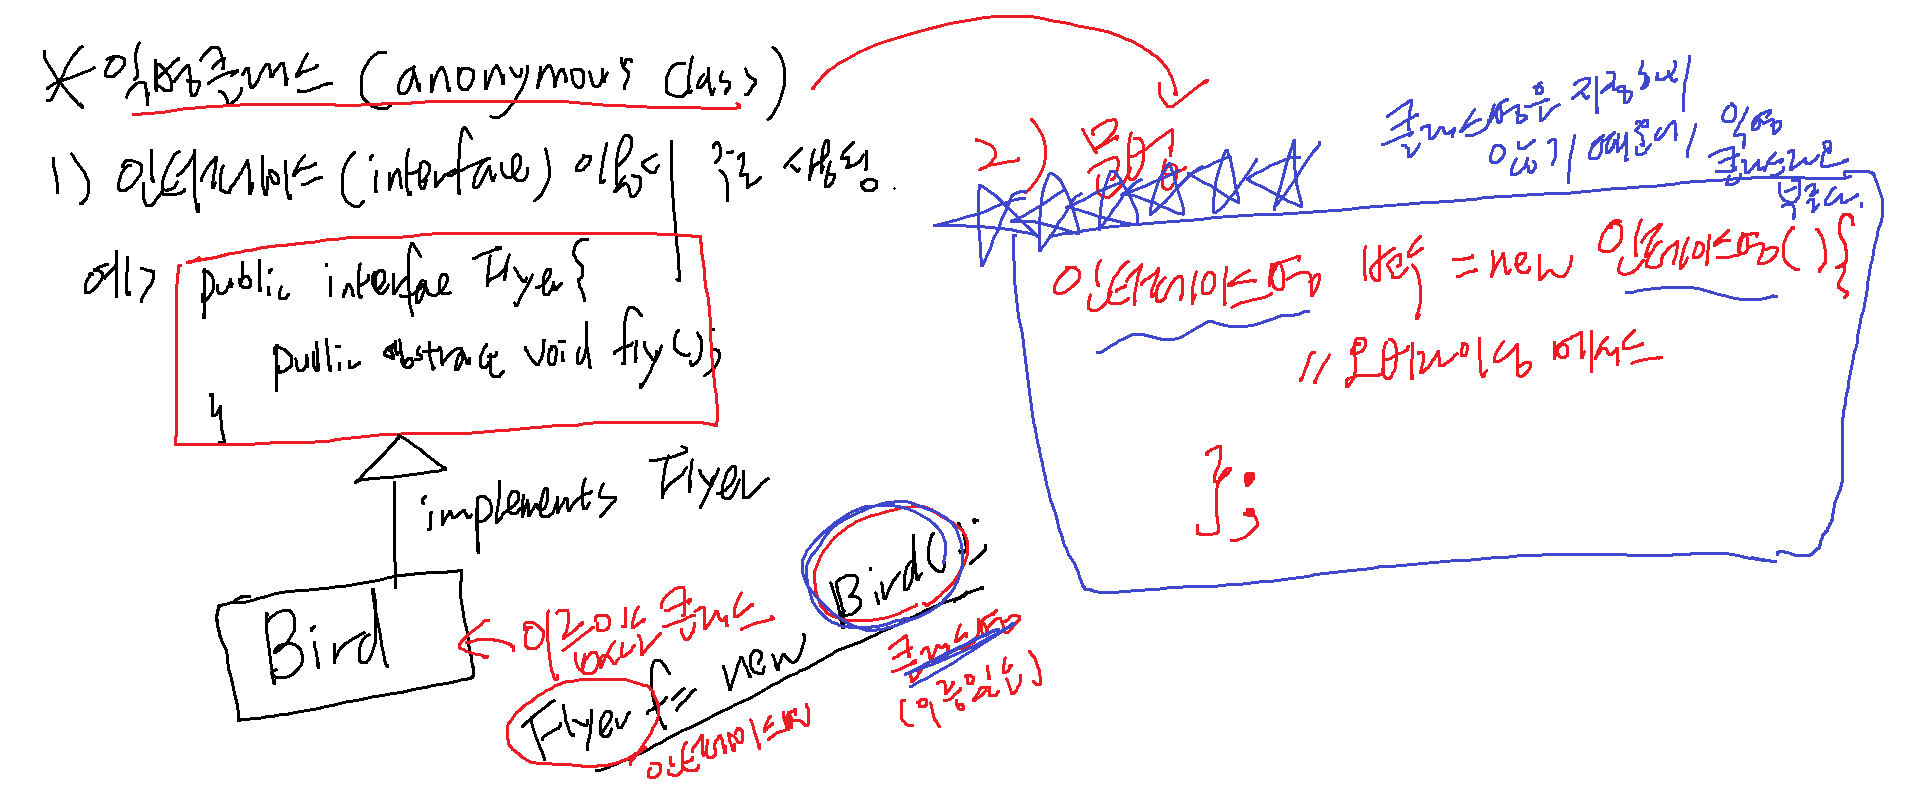 * 익명클래스 (anonymous class)
1) 인터페이스 (interface) 이용시 주로 사용됨.
예)
public interfae Flyer {
public abstract void fly();
}
implements Flyer
Bird
이름이 있는 클래스
Flyer f = new Bird();
인터페이스명
클래스명
(이름있는)
2) 문법
클래스명을 지정하지
않기 때문에 익명
클래스라고
부른다.
인터페이스명 변수 = new 인터페이스명() {
// 오버라이딩 메서드
};